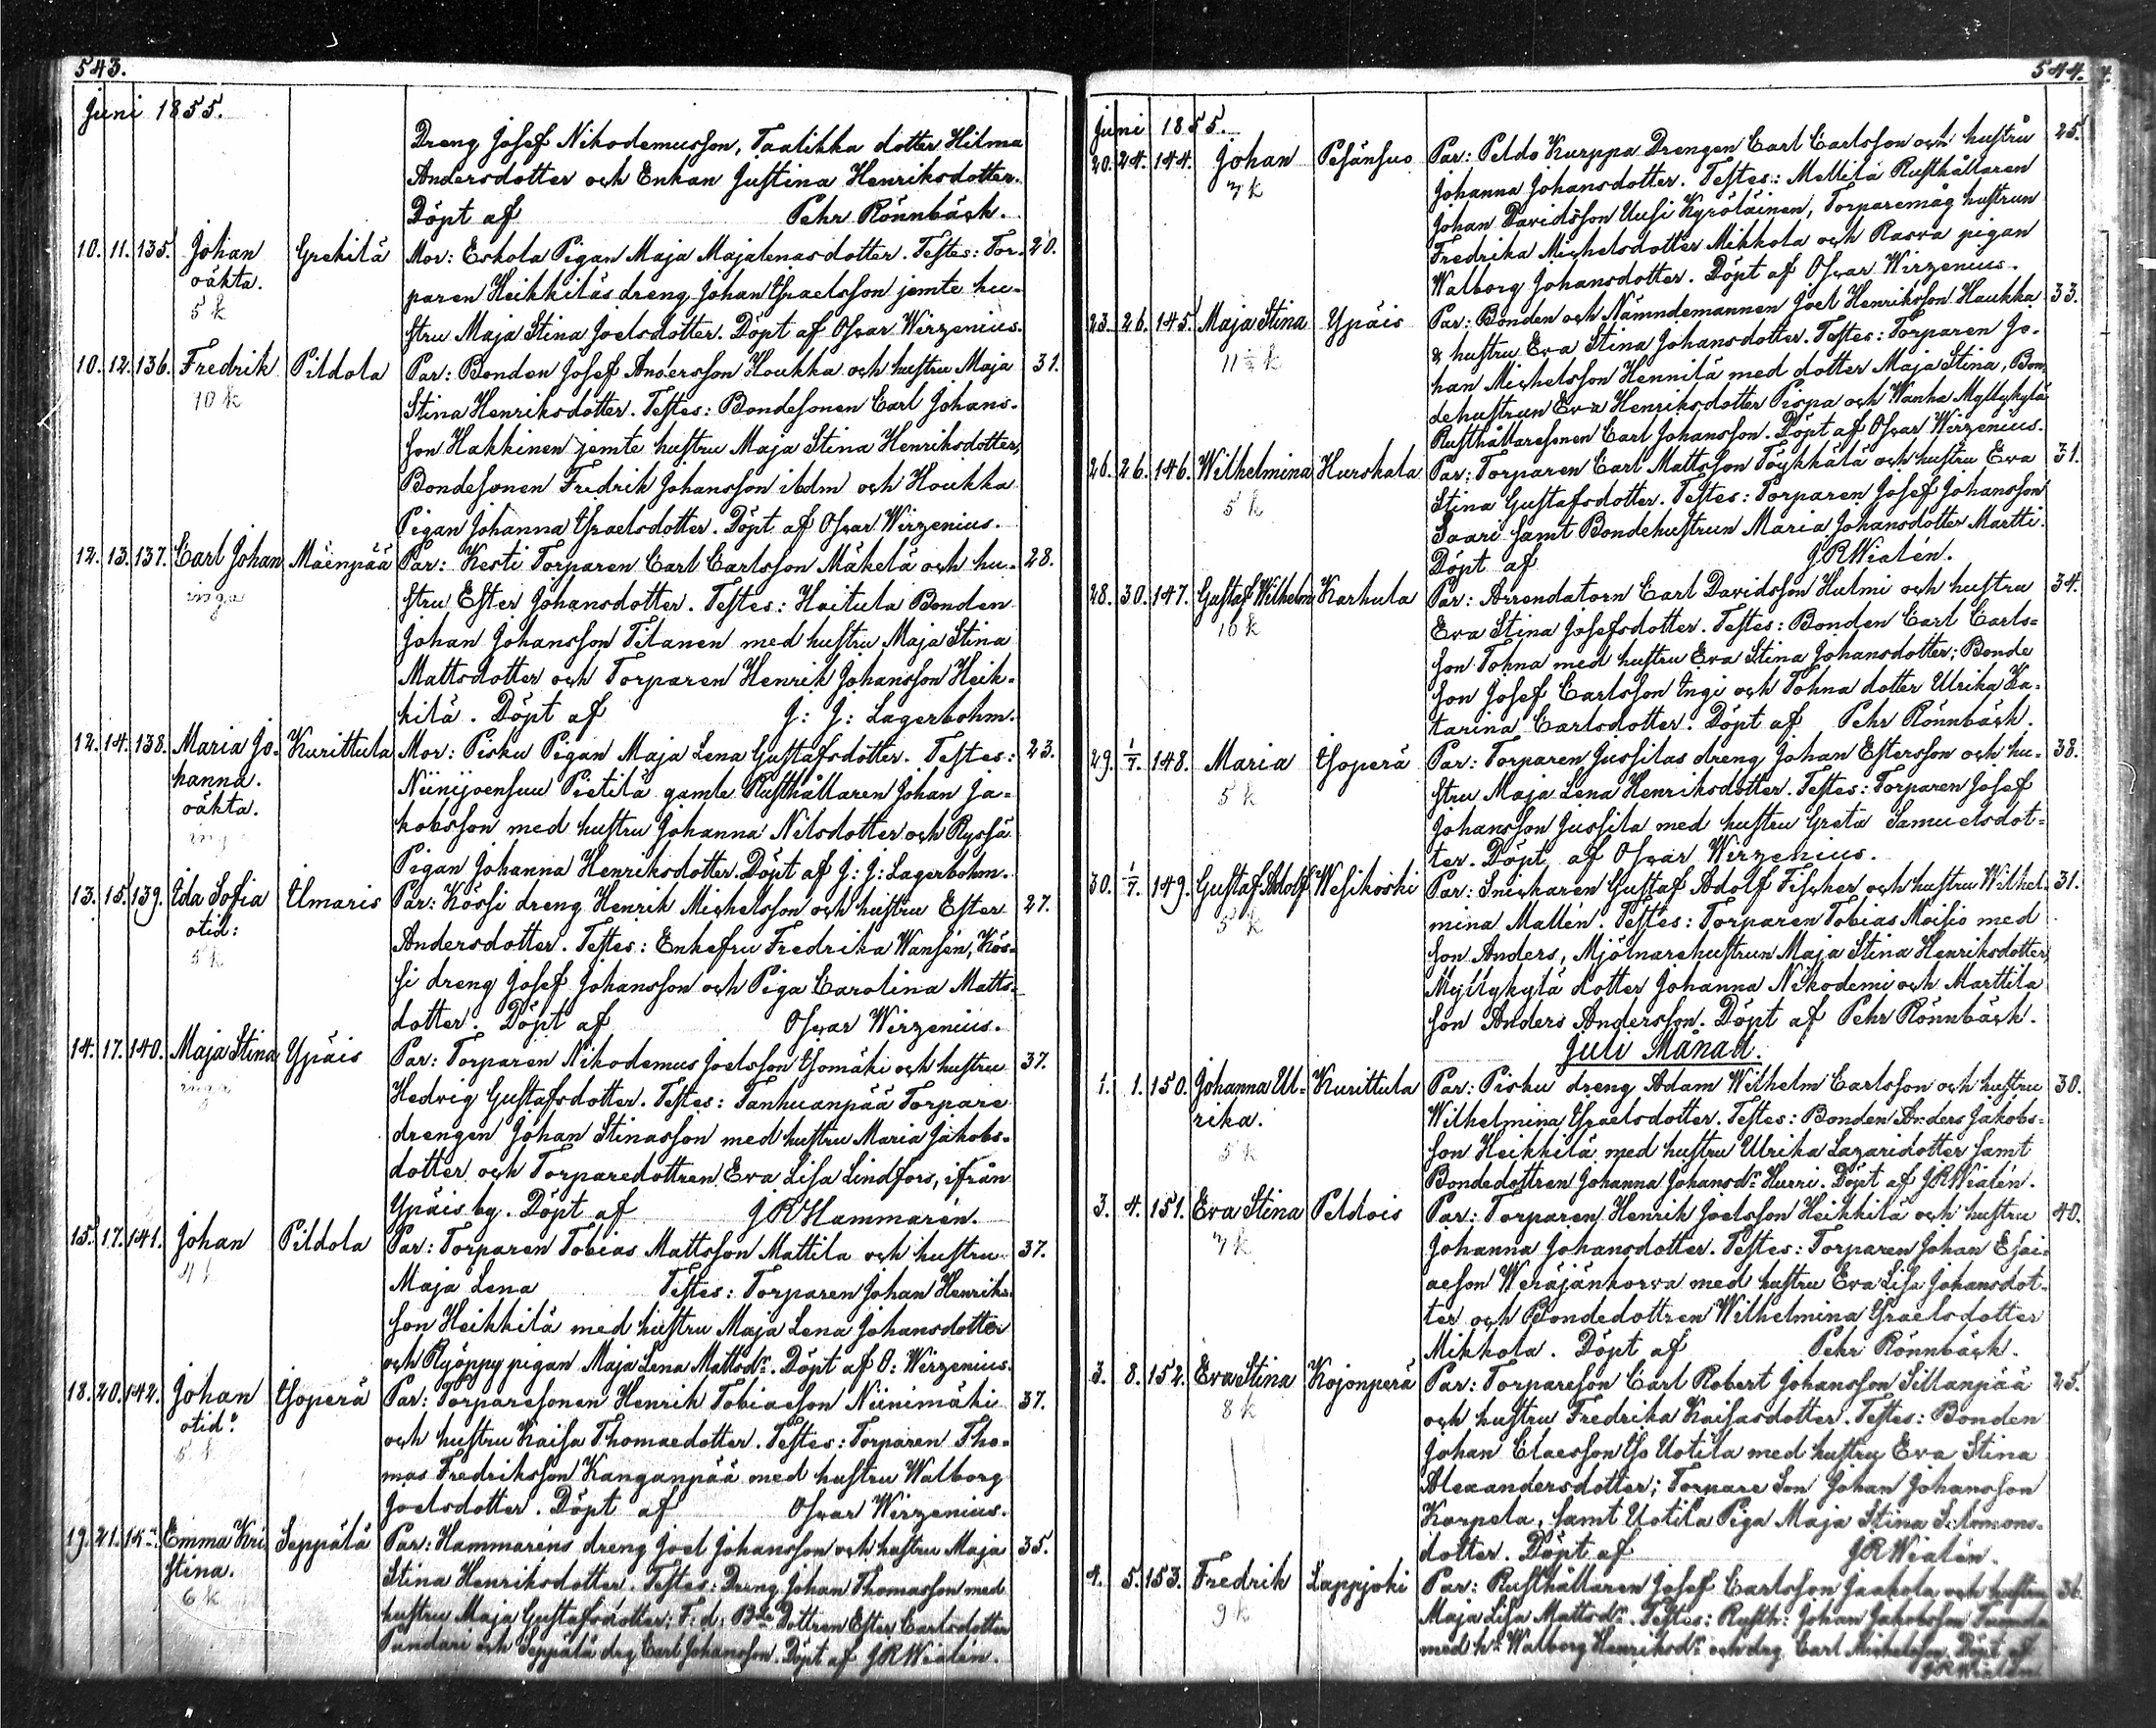 543.
Juni 1855.
Dreng Josef Nikodemusson, Taalikka dotter Hilma
Andersdotter och Enkan Justina Henriksdotter.
Döpt af Pehr Rönnbäck.
10. 11. 135. Johan Grekilä Mor: Eskola Pigan Maja Majalenasdotter. Testes: Tor- 20.
oäkta. paren Heikkiläs dreng Johan Israelsson jemte hu-
5 k stru Maja Stina Joelsdotter. Döpt af Oscar Wirzenius.
10. 12. 136. Fredrik Pildola Par: Bonden Josef Andersson Houkka och hustru Maja 31.
10 k Stina Henriksdotter. Testes: Bondesonen Carl Johans-
son Hakkinen jemte hustru Maja Stina Henriksdotter,
Bondesonen Fredrik Johansson ibdm och Houkka
Pigan Johanna Israelsdotter. Döpt af Oscar Wirzenius.
12. 13. 137. Carl Johan Mäenpää Par: Kesti Torparen Carl Carlsson Mäkelä och hu- 28.
inga stru Ester Johansdotter. Testes: Haitula Bonden
Johan Johansson Titanen med hustru Maja Stina
Mattsdotter och Torparen Henrik Johansson Heik-
kilä. Döpt af J: J: Lagerbohm.
12. 14. 138. Maria Jo- Kurittula Mor: Pisku Pigan Maja Lena Gustafsdotter. Testes: 23.
hanna. Niinijoensuu Pietilä gamle Rusthållaren Johan Ja-
oäkta. kobsson med hustru Johanna Nilsdotter och Ryssä
Pigan Johanna Henriksdotter. Döpt af J: J: Lagerbohm.
13. 15. 139. Ida Sofia Ilmaris Par: Kössi dreng Henrik Michelsson och hustru Ester 27.
otid: Andersdotter. Testes: Enkefru Fredrika Wansén, Kös-
5 k si dreng Josef Johansson och Piga Carolina Matts-
dotter. Döpt af Oscar Wirzenius.
14. 17. 140. Maja Stina Ypäis Par: Torparen Nikodemus Joelsson Isomäki och hustru 37.
inga Hedvig Gustafsdotter. Testes: Tanhuanpää Torpare
drengen Johan Stinasson med hustru Maria Jakobs-
dotter och Torparedottren Eva Lisa Lindfors, ifrån
Ypäis by. Döpt af J R Hammarén.
15. 17. 141. Johan Pildola Par: Torparen Tobias Mattsson Mattila och hustru 37.
Maja Lena Testes: Torparen Johan Henriks-
son Heikkilä med hustru Maja Lena Johansdotter
och Ryöppy pigan Maja Lena Mattsdr. Döpt af O: Wirzenius.
18. 20. 142. Johan Isoperä Par: Torparesonen Henrik Tobiasson Niinimäki 37.
otid: och hustru Kaisa Thomaedotter. Testes: Torparen Tho-
5 k mas Fredriksson Kanganpää med hustru Walborg
Joelsdotter. Döpt af Oscar Wirzenius.
19. 21. Emma Kri Seppälä Par: Hammaréns dreng Joel Johansson och hustru Maja 35.
stina. Stina Henriksdotter. Testes: Dreng Johan Thomasson med
6 k hustru Maja Gustafsdotter; F. d. Bde Dottren Ester Carlsdotter
Pundari och Seppälä drg Carl Johansson. Döpt af J R Wialén.
544.
Juni 1855.
20. 24. 144. Johan Pesänsuo Par: Peldo Kurppa Drengen Carl Carlsson och hustru 25.
7 k Johanna Johansdotter. Testes: Mellilä Rusthållaren
Johan Davidsson Uusi Kyröläinen, Torparemåg hustrun
Fredrika Michelsdotter Mikkola och Rasva pigan
Walborg Johansdotter. Döpt af Oscar Wirzenius.
23. 26. 145. Maja Stina Ypäis Par: Bonden och Nämndemannen Joel Henriksson Haukka 33.
11 ½ k & hustru Eva Stina Johansdotter. Testes: Torparen Jo-
han Michelsson Hennilä med dotter Maja Stina, Bon-
dehustrun Eva Henriksdotter Pispa och Wanha Myllykylä
Rusthållaresonen Carl Johansson. Döpt af Oscar Wirzenius.
26. 26. 146. Wilhelmina Hurskala Par: Torparen Carl Mattsson Töykkälä och hustru Eva 31.
5 k Stina Gustafsdotter. Testes: Torparen Josef Johansson
Saari samt Bondehustrun Maria Johansdotter Martti.
Döpt af J R Wialén.
28. 30. 147. Gustaf Wilhelm Karhula Par: Arrendatorn Carl Davidsson Hulmi och hustru 34.
16 k Eva Stina Josefsdotter. Testes: Bonden Carl Carls-
son Tohna med hustru Eva Stina Johansdotter; Bonde
son Josef Carlsson Ingi och Tohna dotter Ulrika Ka-
tarina Carlsdotter. Döpt af Pehr Rönnbäck.
29. 1/7. 148. Maria Isoperä Par: Torparen Jussilas dreng Johan Estersson och hu- 38.
5 k stru Maja Lena Henriksdotter. Testes: Torparen Josef
Johansson Jussila med hustru Greta Samuelsdot-
ter. Döpt af Oscar Wirzenius.
30. 1/7. 149. Gustaf Adolf Wesikoski Par: Snickaren Gustaf Adolf Fischer och hustru Wilhel- 31.
5 k mina Mallén. Testes: Torparen Tobias Moisio med
son Anders, Mjölnarehustrun Maja Stina Henriksdotter
Myllykylä dotter Johanna Nikodemi och Marttila
son Anders Andersson. Döpt af Pehr Rönnbäck.
Juli Månad.
1. 1. 150. Johanna Ul- Kurittula Par: Pisku dreng Adam Wilhelm Carlsson och hustru 30.
rika. Wilhelmina Israelsdotter. Testes: Bonden Anders Jakobs-
5 k son Heikkilä med hustru Ulrika Lazaridotter samt
Bondedottren Johanna Johansdr Hurri. Döpt af J R Wialén.
3. 4. 151. Eva Stina Peldois Par: Torparen Henrik Joelsson Heikkilä och hustru 40.
7 k Johanna Johansdotter. Testes: Torparen Johan Esai-
aeson Weräjänkorva med hustru Eva Lisa Johansdot-
ter och Bondedottren Wilhelmina Israelsdotter
Mikkola. Döpt af Pehr Rönnbäck.
3. 8. 152. Eva Stina Kojonperä Par: Torpareson Carl Robert Johansson Sillanpää 25.
8 k och hustru Fredrika Kaisasdotter. Testes: Bonden
Johan Claesson Iso Uotila med hustru Eva Stina
Alexandersdotter; Torpare Son Johan Johansson
Korpela, samt Uotila Piga Maja Stina Salomons-
dotter. Döpt af J R Wialén.
4. 5. 153. Fredrik Lappjoki Par: Rusthållaren Josef Carlsson Jaakola och hustru 36.
9 k Maja Lisa Mattsdr. Testes: Rusth: Johan Jakobsson
med h: Walborg Henriksdr och drg Carl Michelsson. Döpt af
J R Wialén.